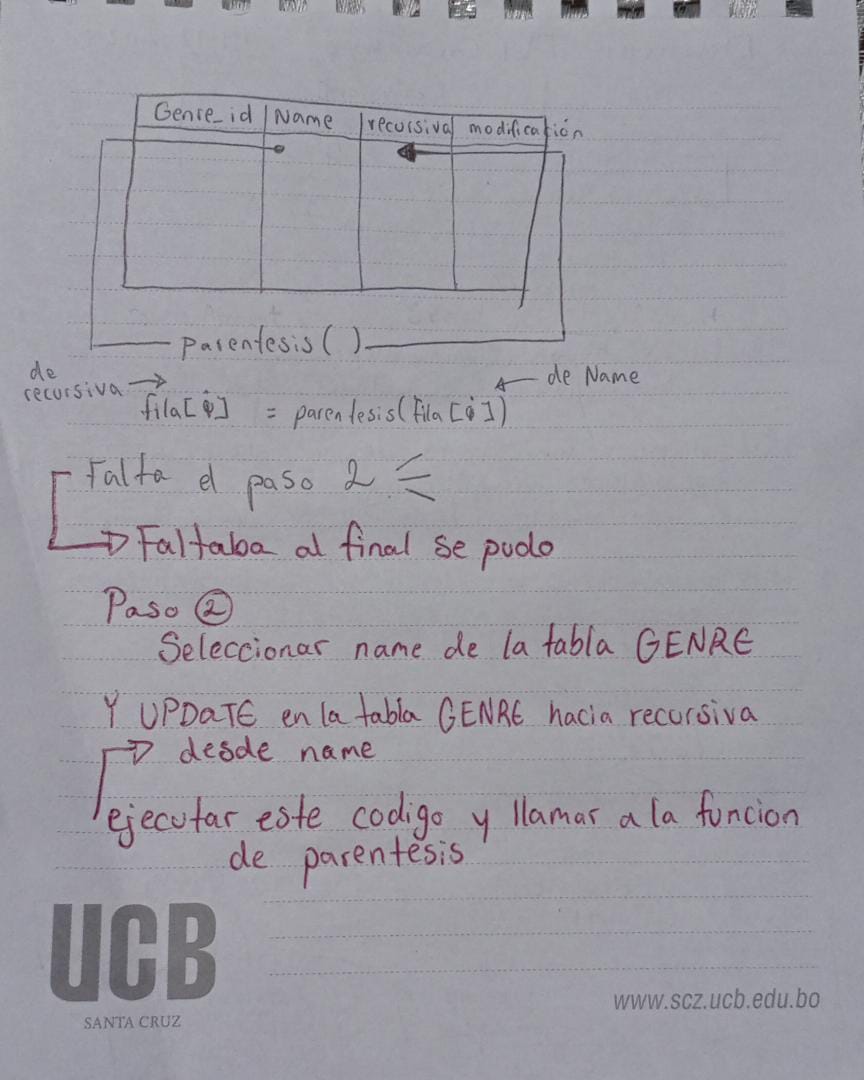 Genre_id Name recursiva modificación
parentesis( )
de recursiva
de Name
fila[i] = parentesis(Fila[i])
Falta el paso 2
Faltaba al final se pudo
Paso 2
Seleccionar name de la tabla GENRE
Y UPDaTE en la tabla GENRE hacia recursiva
desde name
ejecutar este codigo y llamar a la funcion
de parentesis
UCB
SANTA CRUZ
www.scz.ucb.edu.bo